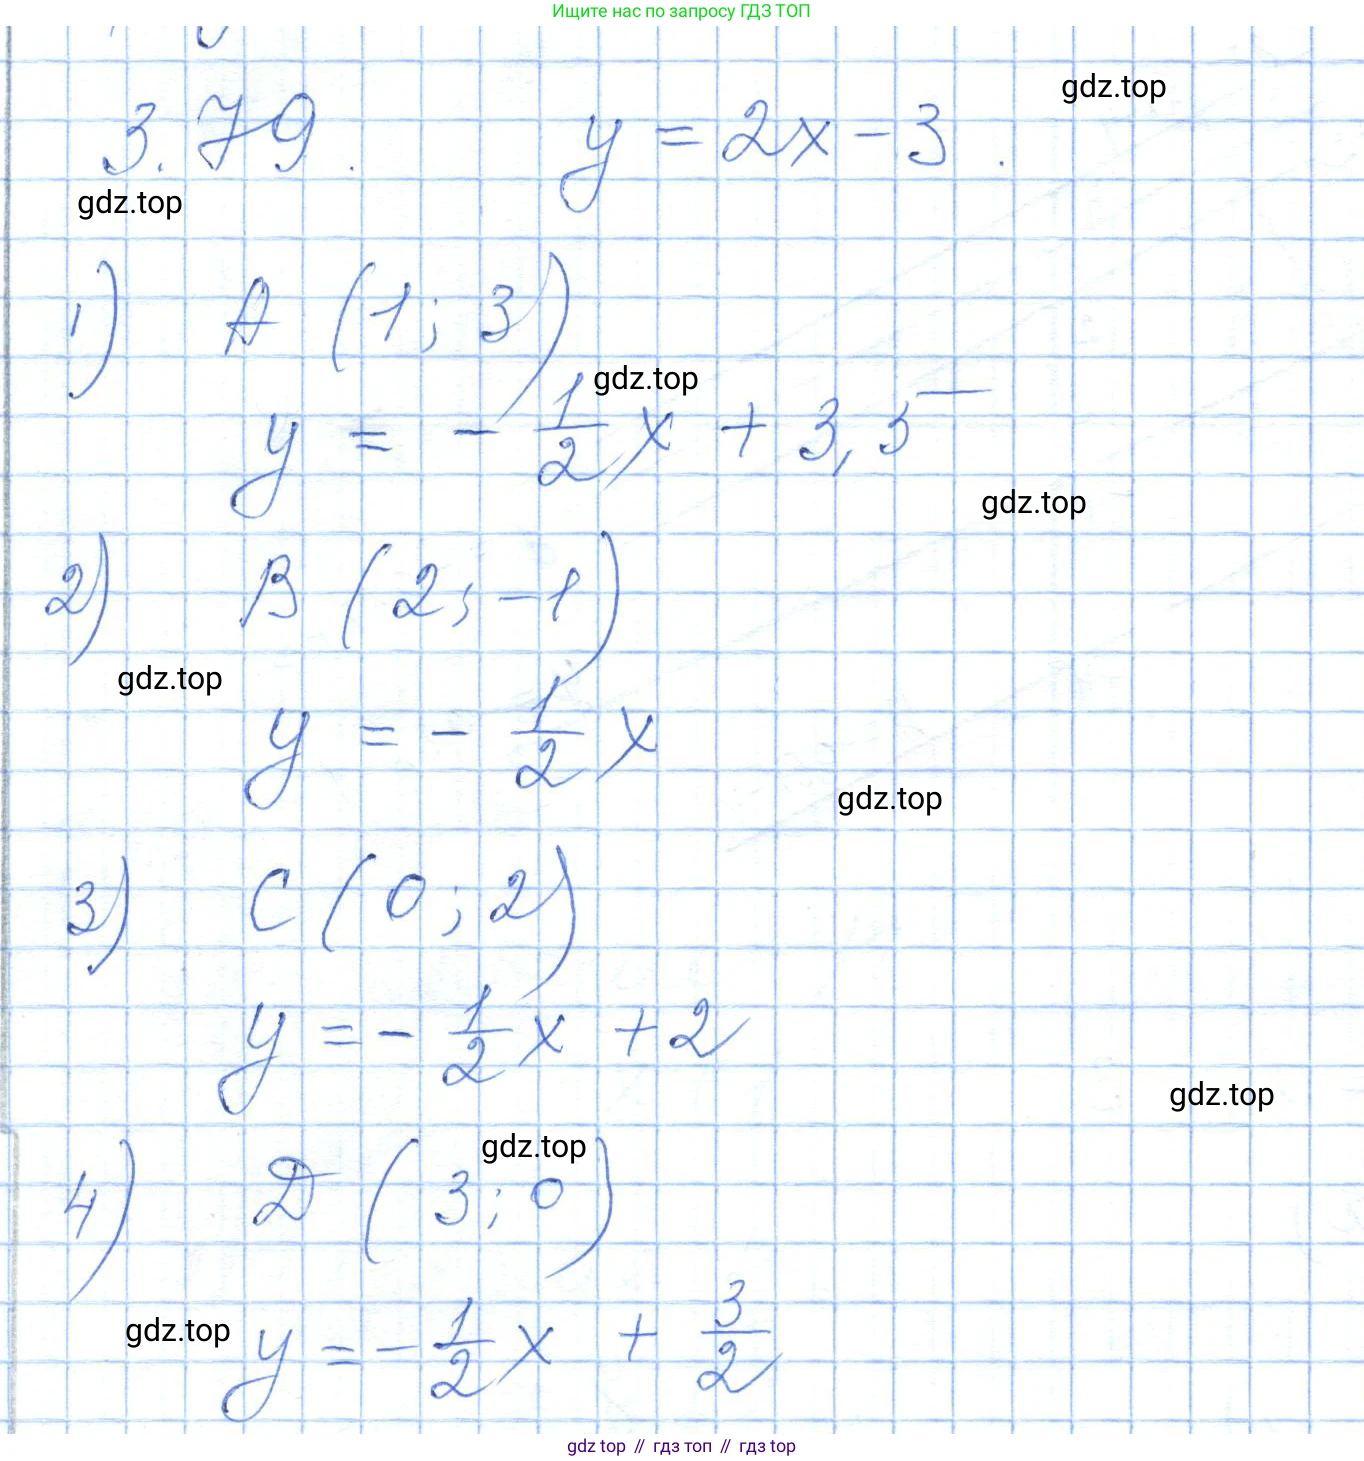 Ищите нас по запросу ГДЗ ТОП
gdz.top
3.79. y = 2x - 3.
gdz.top
1) A (1; 3)
gdz.top
y = - 1/2 x + 3,5
gdz.top
2) B (2; -1)
gdz.top
y = - 1/2 x
gdz.top
3) C (0; 2)
y = - 1/2 x + 2
gdz.top
gdz.top
4) D (3; 0)
gdz.top
y = - 1/2 x + 3/2
gdz top // гдз топ // гдз top